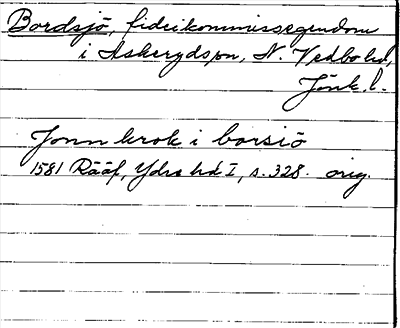 Bordsjö, fideikommissegendom
i Askerydspn, N. Vedbo hd,
Jönk. l.
Jonn krok i borsiö
1581 Rääf, Ydre hd I, s. 328. orig.